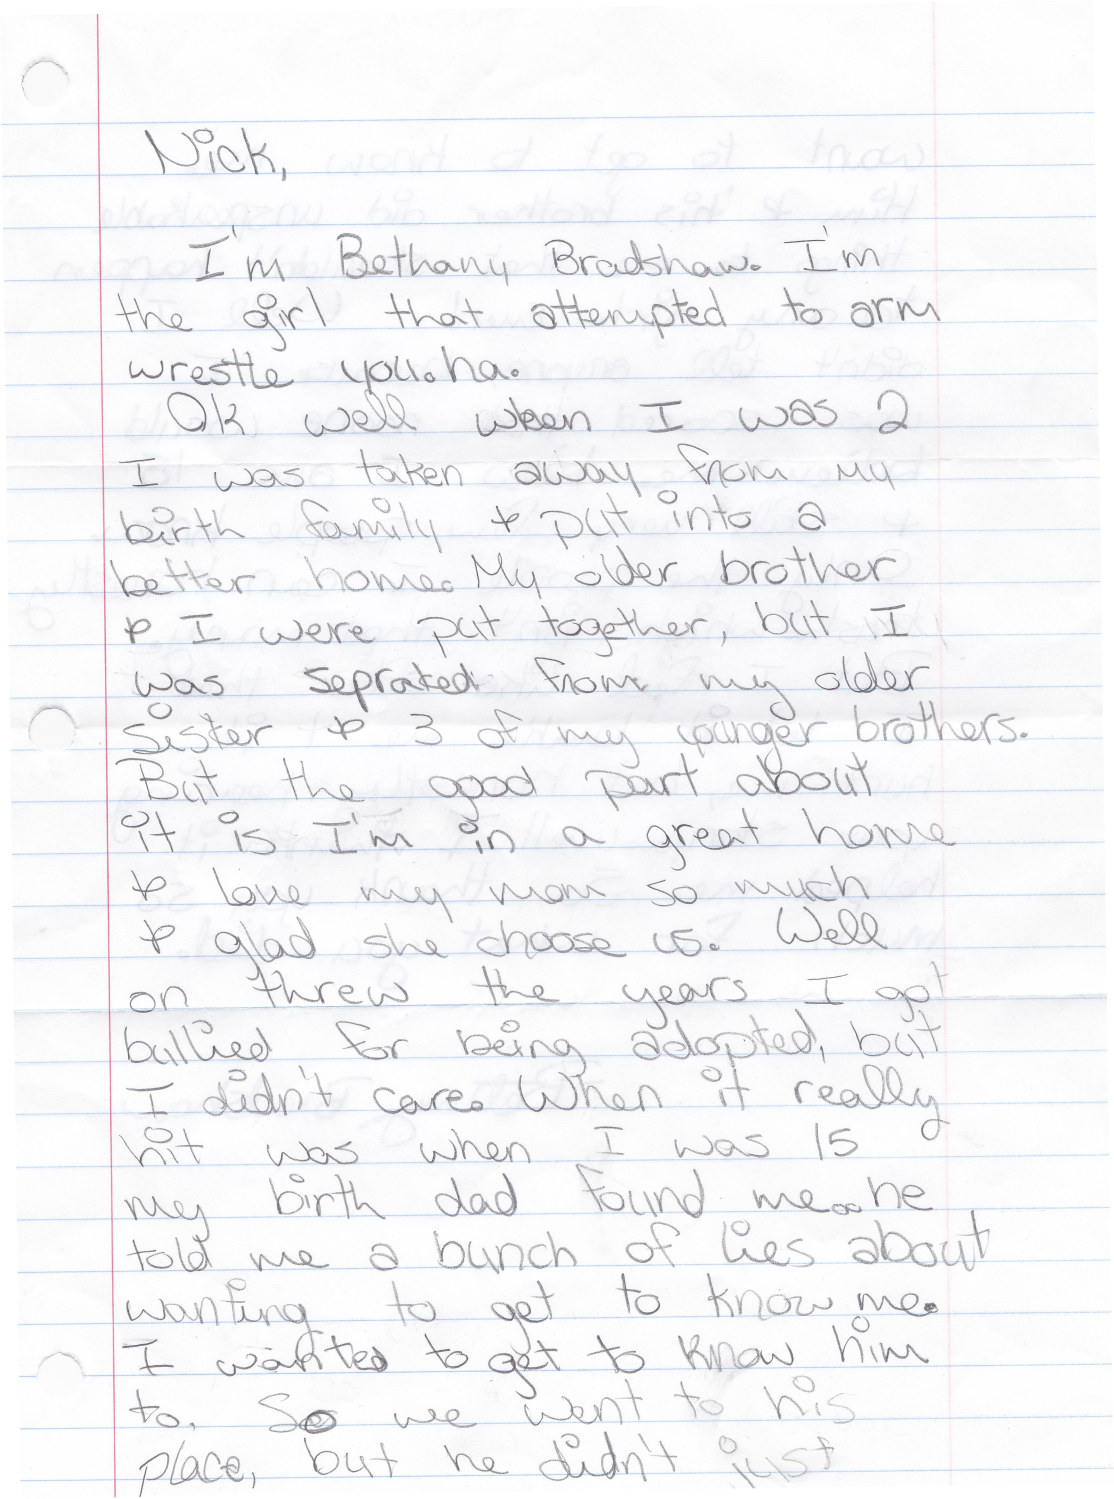 Nick,
I'm Bethany Bradshaw. I'm
the girl that attempted to arm
wrestle you. ha.
Ok well when I was 2
I was taken away from my
birth family & put into a
better home. My older brother
& I were put together, but I
was seprated from my older
sister & 3 of my younger brothers.
But the good part about
it is I'm in a great home
& love my mom so much
& glad she choose us. Well
on threw the years I got
bullied for being adopted, but
I didn't care. When it really
hit was when I was 15
my birth dad found me.. he
told me a bunch of lies about
wanting to get to know me.
I wanted to get to know him
to. So we went to his
place, but he didn't just